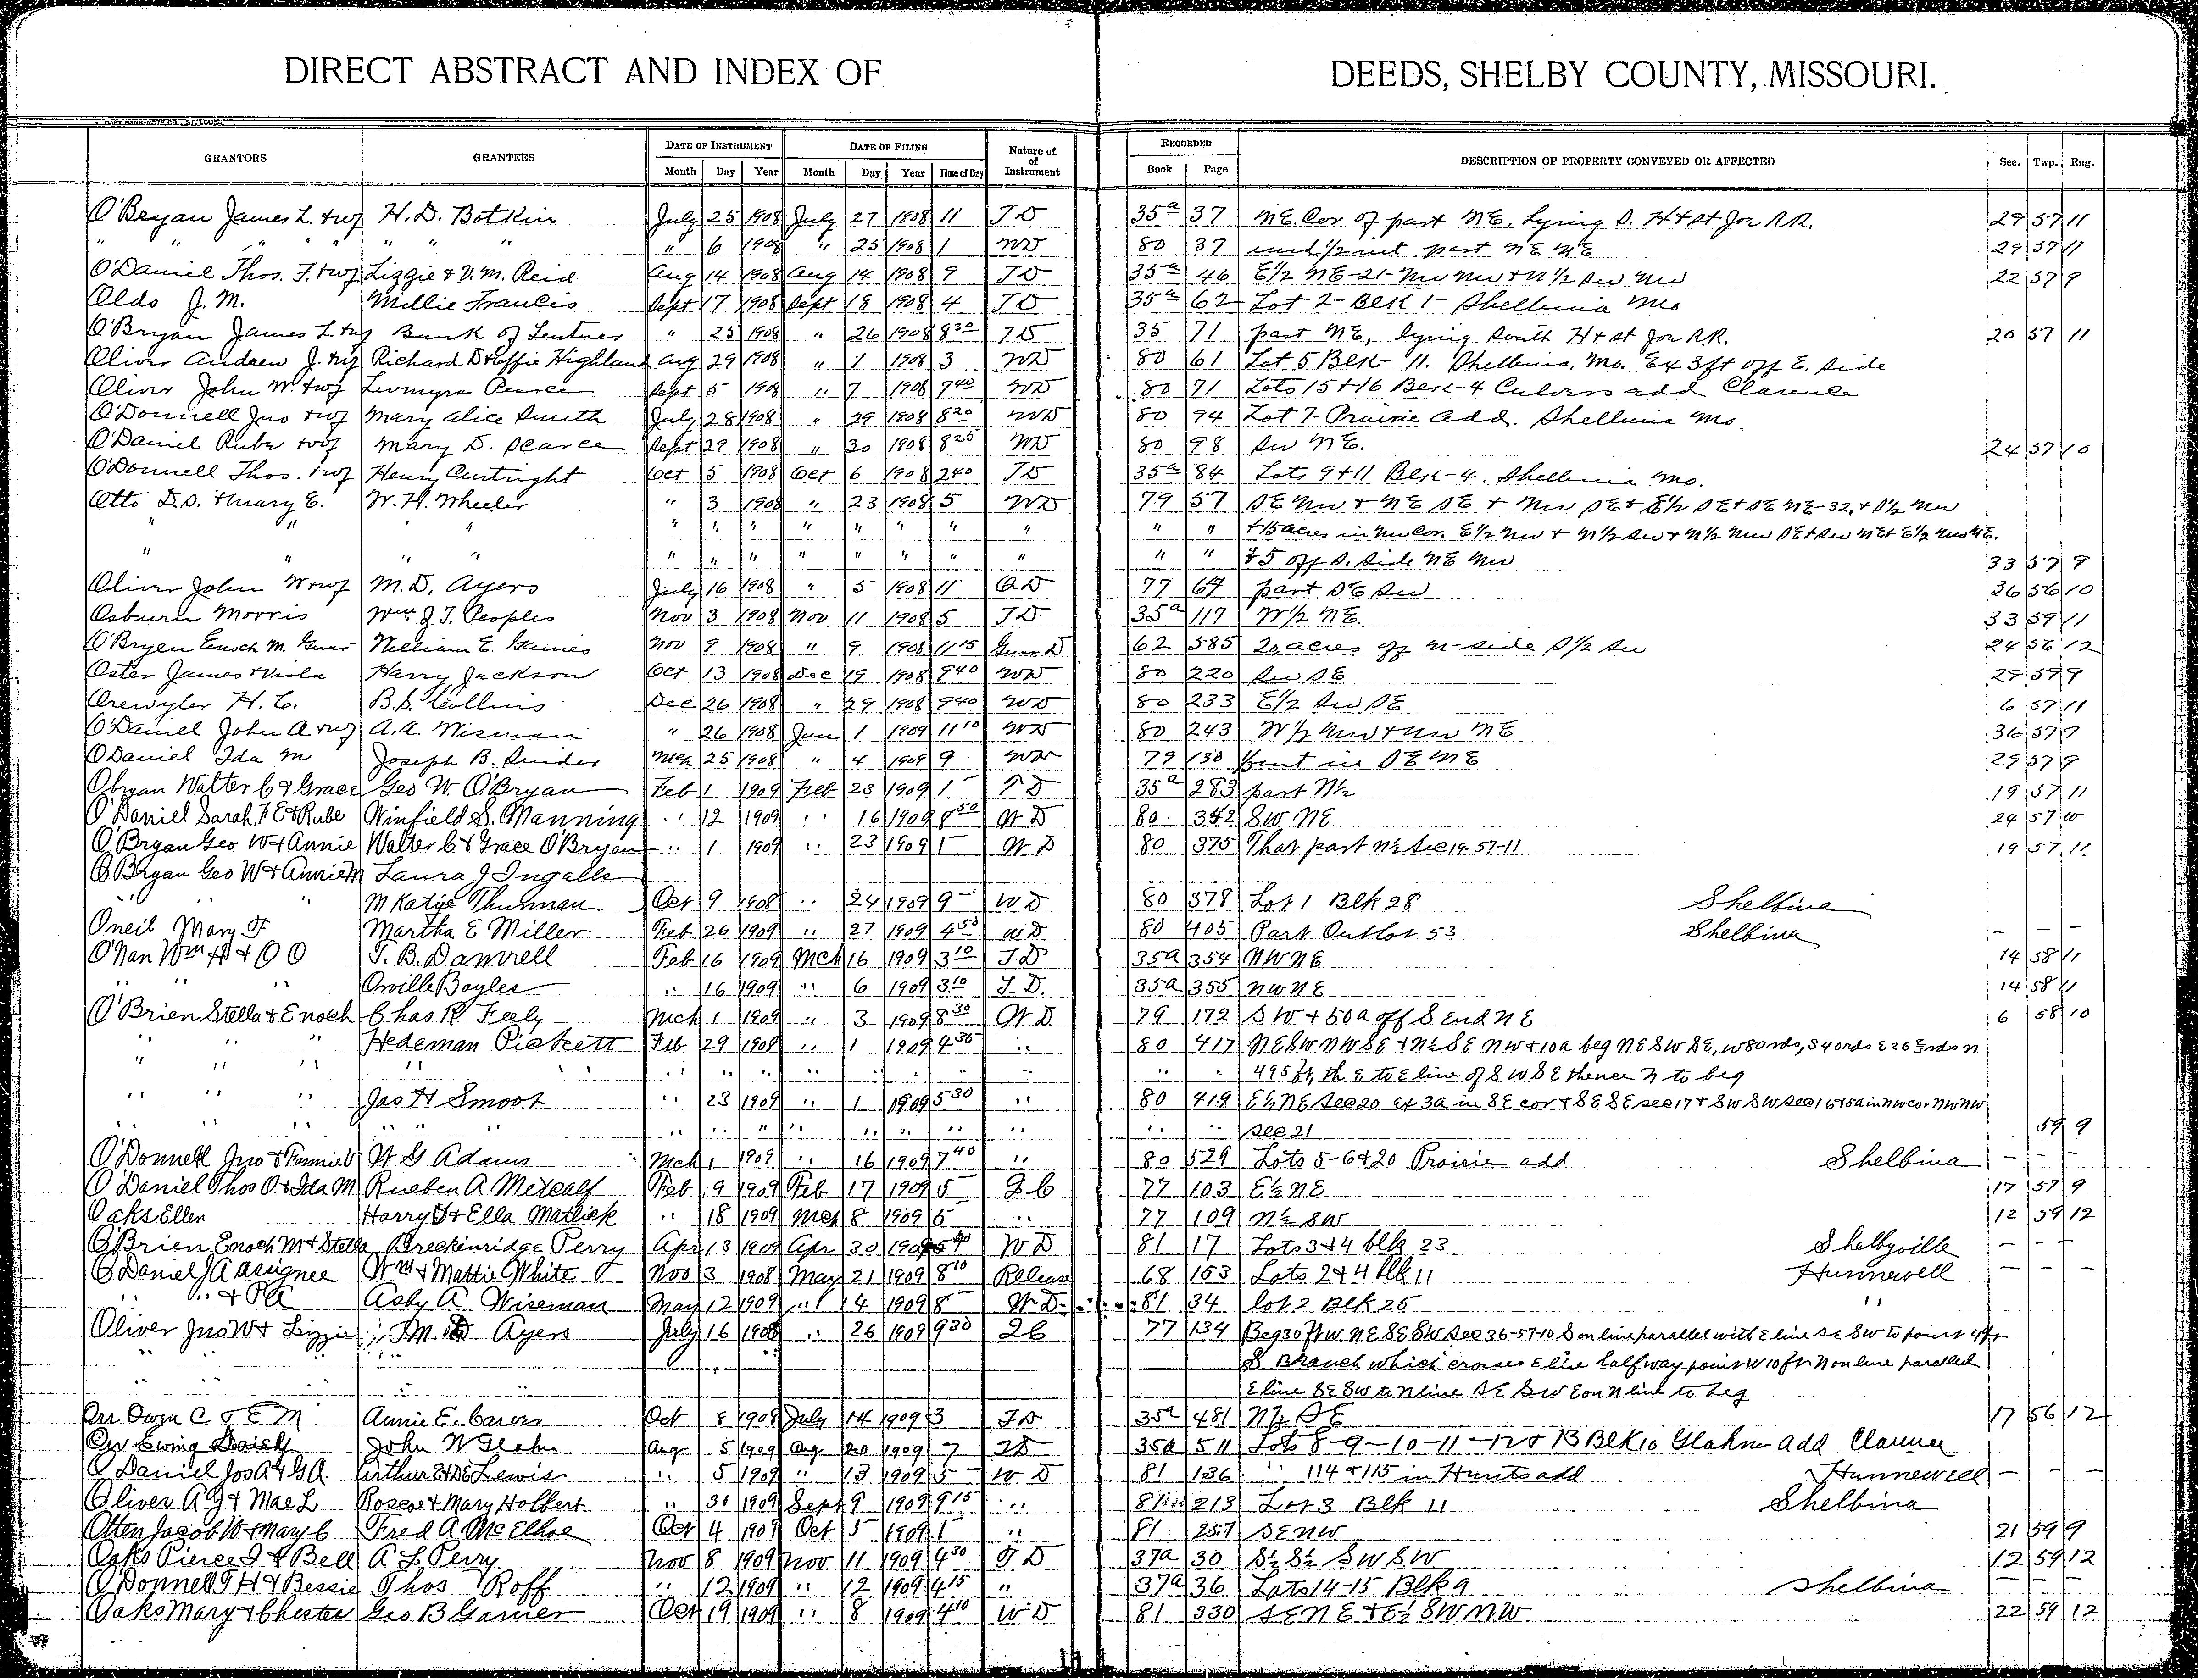 DIRECT ABSTRACT AND INDEX OF DEEDS, SHELBY COUNTY, MISSOURI.
GRANTORS GRANTEES DATE OF INSTRUMENT DATE OF FILING Nature of of Instrument RECORDED DESCRIPTION OF PROPERTY CONVEYED OR AFFECTED Sec. Twp. Rng.
Month Day Year Month Day Year Time of Day Book Page
O'Bryan James L. + wf H. D. Botkin July 25 1908 July 27 1908 11 T D 35a 37 N.E. Cor of part N E, lying S. H + St Joe R.R. 29 57 11
" " " " " " " " " 6 1908 " 25 1908 1 W D 80 37 und 1/2 int part N E N E 29 57 11
O'Daniel Thos. F. + wf Lizzie + V. M. Reid Aug 14 1908 Aug 14 1908 9 T D 35a 46 E 1/2 N E - 21 - Nw Nw + N 1/2 Sw Nw 22 57 9
Olds J. M. Millie Francis Sept 17 1908 Sept 18 1908 4 T D 35a 62 Lot 2 - Blk 1 - Shelbina Mo
O'Bryan James L. + wf Bank of Lentner " 25 1908 " 26 1908 8 30 T D 35 71 part N E, lying South H + St Joe R.R. 20 57 11
Oliver Andrew J. + wf Richard D + Effie Highland Aug 29 1908 " 1 1908 3 W D 80 61 Lot 5 Blk - 11. Shelbina, Mo. Ex 3 ft off E. Side
Oliver John W. + wf Pearce Sept 5 1908 " 7 1908 7 40 W D 80 71 Lots 15 + 16 Blk - 4 Culvers add Clarence
O'Donnell Jno + wf Mary Alice Smith July 28 1908 " 29 1908 8 20 W D 80 94 Lot 7 - Prairie Add. Shelbina Mo.
O'Daniel Rube + wf Mary D. Pearce Sept 29 1908 " 30 1908 8 25 W D 80 98 Sw N E. 24 57 10
O'Donnell Thos. + wf Henry Curtright Oct 5 1908 Oct 6 1908 2 40 T D 35a 84 Lots 9 + 11 Blk - 4. Shelbina Mo.
Otto D. S. + Mary E. W. H. Wheeler " 3 1908 " 23 1908 5 W D 79 57 S E Nw + N E S E + Nw S E + E 1/2 S E + S E N E - 32, + S 1/2 Nw
" " " " " " " " " " " " " " + 15 acres in Nw Cor. E 1/2 Nw + N 1/2 Sw + N 1/2 Nw S E + Sw N E + E 1/2 Nw N E.
" " " " " " " " " " " " " " + 5 off S. Side N E Nw 33 57 9
Oliver John W + wf M. D. Ayers July 16 1908 " 5 1908 11 Q D 77 64 part S E Sw 36 56 10
Osburn Morris Wm. J. T. Peoples Nov 3 1908 Nov 11 1908 5 T D 35a 117 W 1/2 N E. 33 59 11
O'Bryen Enoch M. William E. Gaines Nov 9 1908 " 9 1908 11 15 62 585 20 acres off N - side S 1/2 Sw 24 56 12
Oster James + Viola Harry Jackson Oct 13 1908 Dec 19 1908 9 40 W D 80 220 Sw S E 29 59 9
Orewyler H. C. B. S. Collins Dec 26 1908 " 29 1908 9 40 W D 80 233 E 1/2 Sw S E 6 57 11
O'Daniel John A + wf A. A. Wisman " 26 1908 Jan 1 1909 11 10 W D 80 243 W 1/2 Nw + Nw N E 36 57 9
O'Daniel Ida M Joseph B. Mch 25 1908 " 4 1909 9 W D 79 130 int in S E N E 29 57 9
Obryan Walter C + Grace Geo W. O'Bryan Feb 1 1909 Feb 23 1909 1 T D 35a 283 part N 1/2 19 57 11
O'Daniel Sarah F E + Rube Winfield S. Manning " 12 1909 " 16 1909 8 50 W D 80 352 S W N E 24 57 10
O'Bryan Geo W + Annie Walter C + Grace O'Bryan " 1 1909 " 23 1909 1 W D 80 375 That part N 1/2 Sec 19-57-11 19 57 11
O'Bryan Geo W + Annie M Laura J Ingalls
" " " M. Katye Thurman Oct 9 1908 " 24 1909 9 W D 80 378 Lot 1 Blk 28 Shelbina
Oneil Mary F Martha E Miller Feb 26 1909 " 27 1909 4 50 W D 80 405 Part Outlot 53 Shelbina — — —
O'Nan Wm H + O O T. B. Damrell Feb 16 1909 Mch 16 1909 3 10 T D 35a 354 N W N E 14 58 11
" " " Orville Bayles " 16 1909 " 6 1909 3 10 T. D. 35a 355 N W N E 14 58 11
O'Brien Stella + Enoch Chas R Feely Mch 1 1909 " 3 1909 8 30 W D 79 172 S W + 50 a off S End N E 6 58 10
" " " Hedeman Pickett Feb 29 1908 " 1 1909 4 30 " 80 417 N E S W N W S E + N 1/2 S E N W + 10 a beg N E S W S E, W 80 rds, S 40 rds E 26 rds N
" " " " " " " " " " " " " " 495 ft, th E to E line of S W S E thence N to beg
" " " Jas H Smoot " 23 1909 " 1 1909 5 30 " 80 419 E 1/2 N E Sec 20 Ex 3 a in S E cor + S E S E Sec 17 + S W S W Sec 16 + 5 a in N W cor N W N W
" " " " " " " " " " " " " Sec 21 59 9
O'Donnell Jno + Fannie W G Adams Mch 1 1909 " 16 1909 7 40 " 80 529 Lots 5-6 + 20 Prairie add Shelbina — — —
O'Daniel Thos O. + Ida M Rueben A. Metcalf Feb 9 1909 Feb 17 1909 5 77 103 E 1/2 N E 17 57 9
Oaks Ellen Harry + Ella Matlick " 18 1909 Mch 8 1909 " 77 109 N 1/2 S W 12 59 12
O'Brien Enoch M + Stella Breckenridge Perry Apr 13 1909 Apr 30 1909 W D 81 17 Lots 3 + 4 blk 23 Shelbyville — — —
O'Daniel J A assignee Wm + Mattie White Nov 3 1908 May 21 1909 8 10 Release 68 153 Lots 2 + 4 blk 11 Hunnewell — — —
" " + Asby A Wiseman May 12 1909 " 14 1909 8 W D. 81 34 lot 2 Blk 25 "
Oliver Jno W + Lizzie M. D Ayers July 16 1908 " 26 1909 9 30 77 134 Beg 30 ft W N E S E S W Sec 36-57-10 S on line parallel with E line S E S W to point
" " S Branch which crosses E line half way point W 10 ft N on line parallel
" " " E line S E S W to N line S E S W E on N line to beg
Orr Owen C + E M Annie E. Carver Oct 8 1908 July 14 1909 3 T D 35a 481 N 1/2 S E 17 56 12
Orr Ewing John W Glahn Aug 5 1909 Aug 1909 7 T D 35a 511 Lots 8-9-10-11-12 + 13 Blk 10 Glahn add Clarence
O'Daniel Jos A + G A. Arthur E + D E Lewis " 5 1909 " 13 1909 5 W D 81 136 " 114 + 115 in Hunts add Hunnewell — — —
Oliver A J + Mae L Roscoe + Mary Holbert " 30 1909 Sept 9 1909 9 15 " 81 213 Lot 3 Blk 11 Shelbina
Otten Jacob W + Mary C Fred A. McElhoe Oct 4 1909 Oct 5 1909 1 " 81 257 S E N W 21 59 9
Oaks Pierce + Bell A L Perry Nov 8 1909 Nov 11 1909 4 30 T D 37a 30 S 1/2 S 1/2 S W S W 12 59 12
O'Donnell T H + Bessie Thos Roff " 12 1909 " 12 1909 4 15 " 37a 36 Lots 14-15 Blk 9 Shelbina — — —
Oaks Mary + Chester Geo B Garner Oct 19 1909 " 8 1909 4 10 W D 81 330 S E N E + E 1/2 S W N W 22 59 12